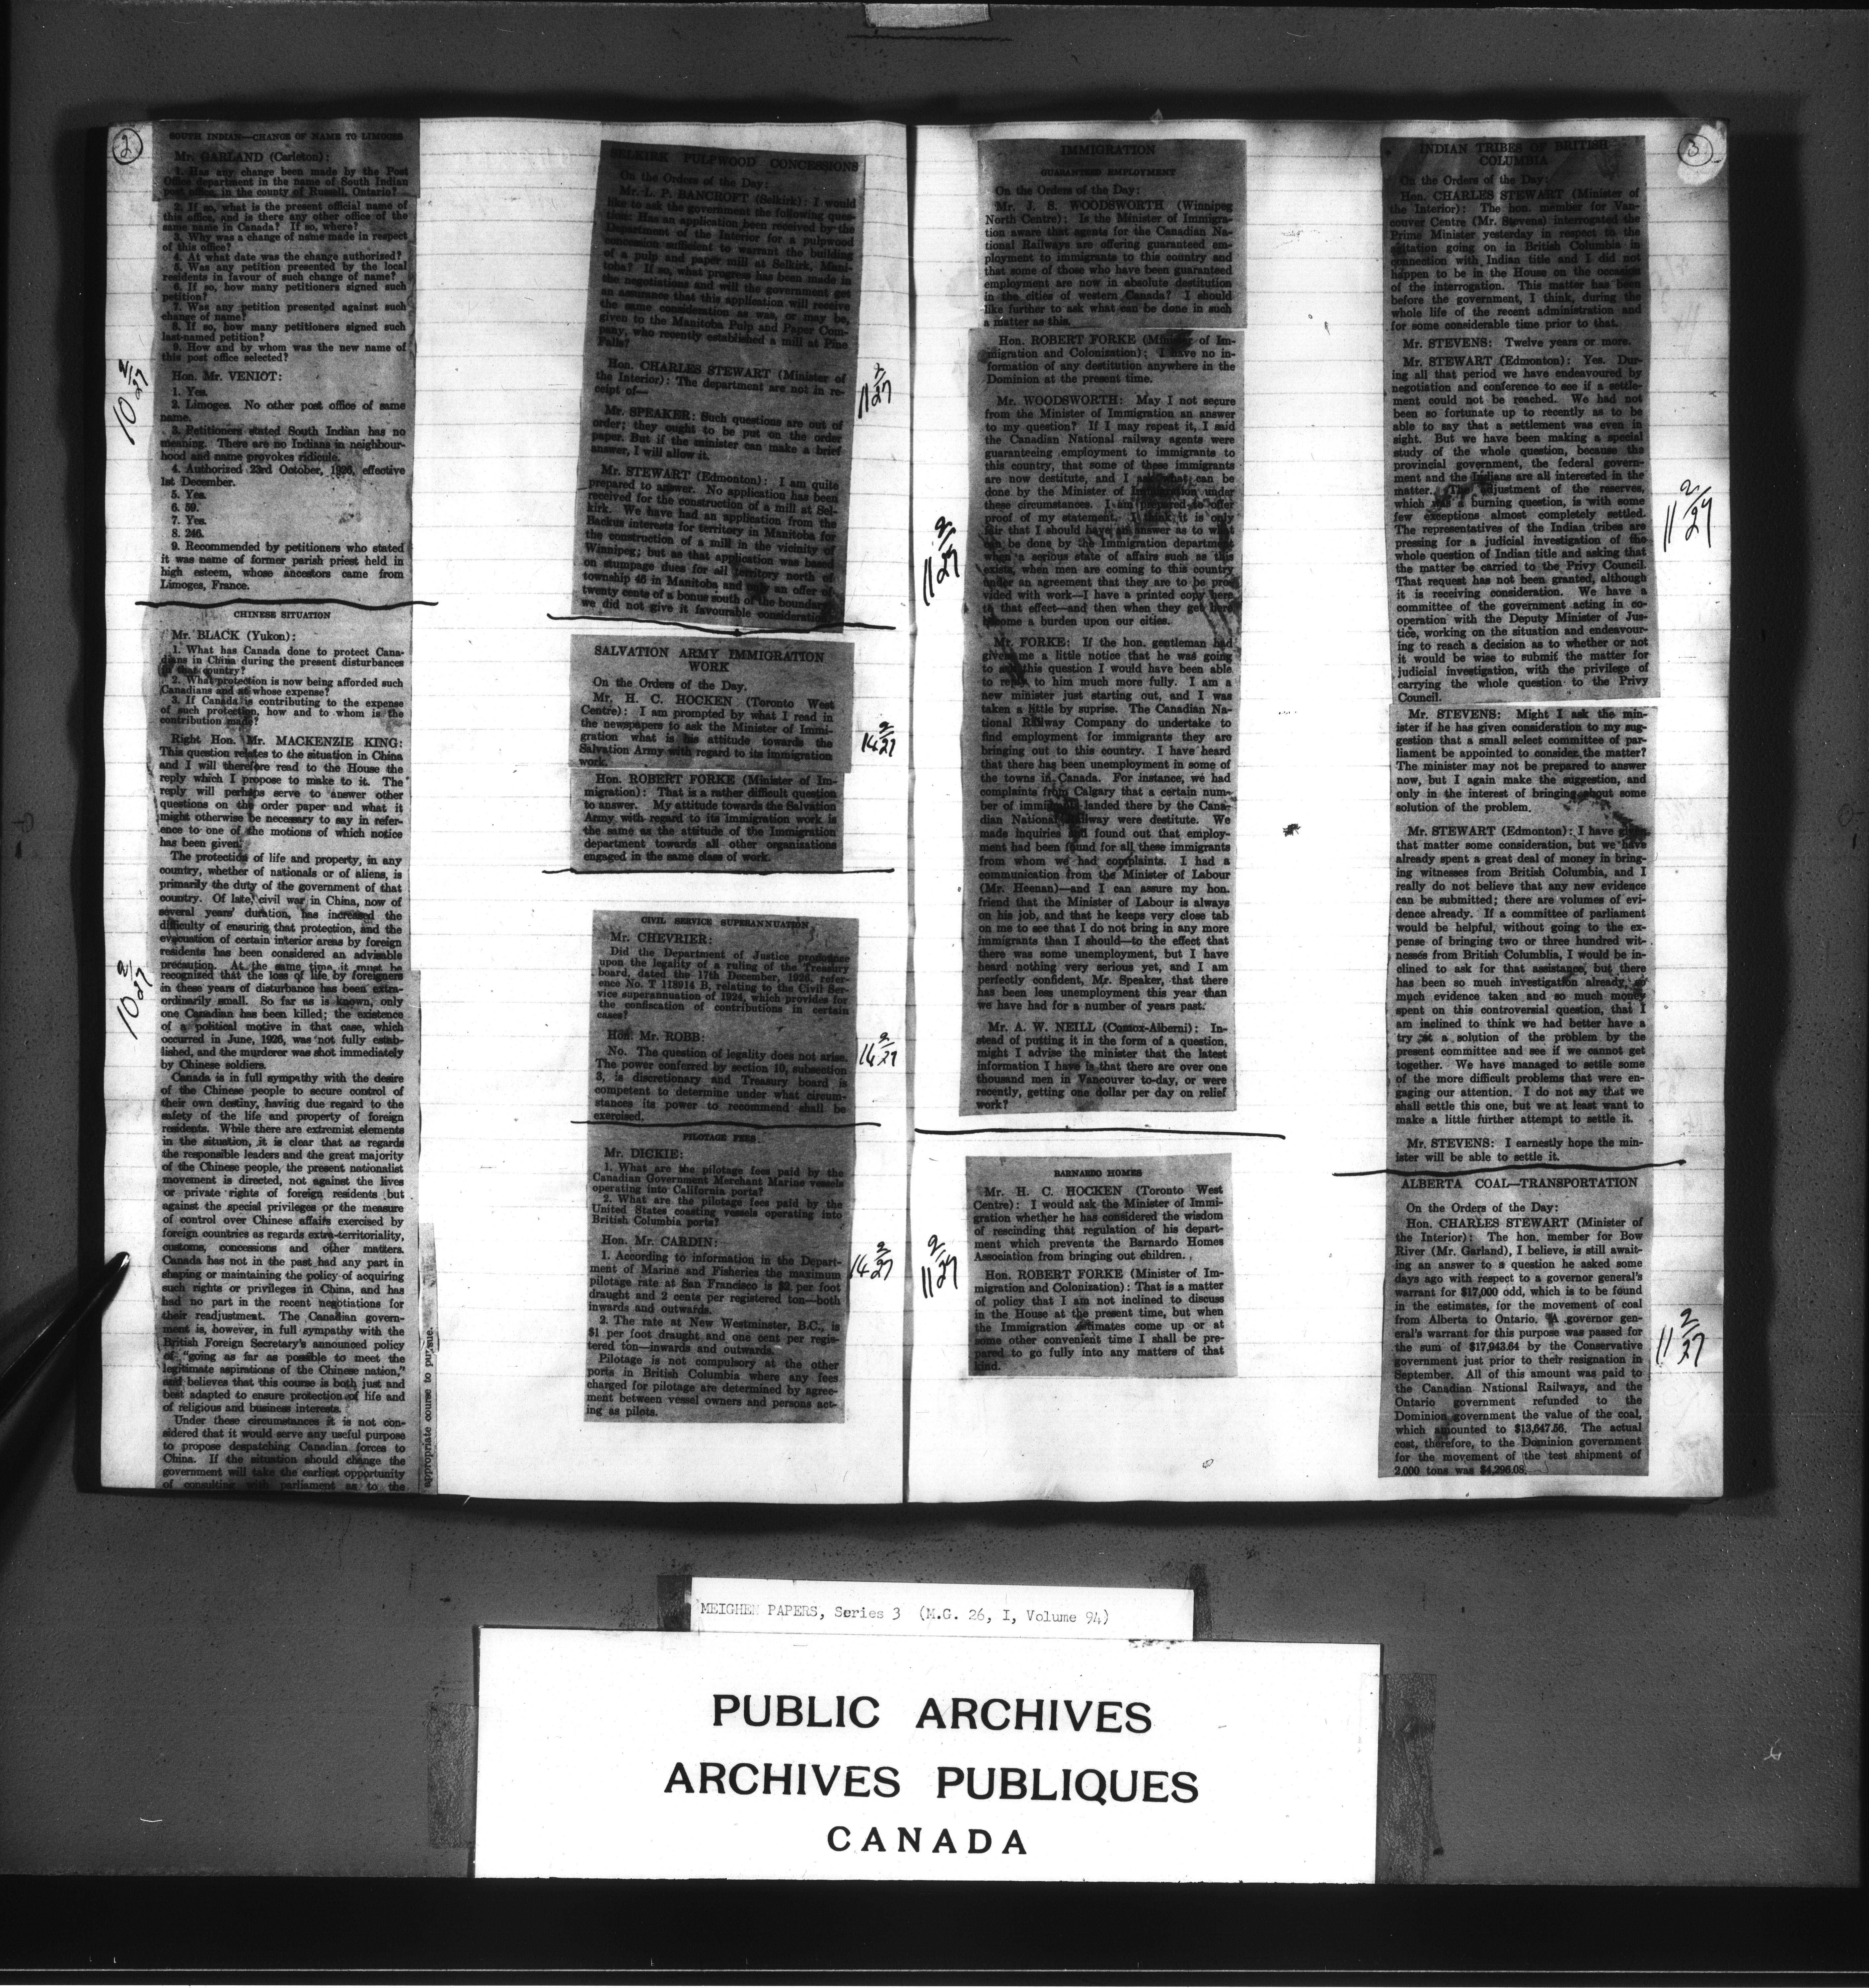 2
SOUTH INDIAN—CHANGE OF NAME TO LIMOGES
Mr. GARLAND (Carleton):
1. Has any change been made by the Post
Office department in the name of South Indian
post office, in the county of Russell, Ontario?
2. If so, what is the present official name of
this office, and is there any other office of the
same name in Canada? If so, where?
3. Why was a change of name made in respect
of this office?
4. At what date was the change authorized?
5. Was any petition presented by the local
residents in favour of such change of name?
6. If so, how many petitioners signed such
petition?
7. Was any petition presented against such
change of name?
8. If so, how many petitioners signed such
last-named petition?
9. How and by whom was the new name of
this post office selected?
Hon. Mr. VENIOT:
1. Yes.
2. Limoges. No other post office of same
name.
3. Petitioners stated South Indian has no
meaning. There are no Indians in neighbour-
hood and name provokes ridicule.
4. Authorized 23rd October, 1926, effective
1st December.
5. Yes.
6. 59.
7. Yes.
8. 246.
9. Recommended by petitioners who stated
it was name of former parish priest held in
high esteem, whose ancestors came from
Limoges, France.
10 2/27
CHINESE SITUATION
Mr. BLACK (Yukon):
1. What has Canada done to protect Cana-
dians in China during the present disturbances
in that country?
2. What protection is now being afforded such
Canadians and at whose expense?
3. If Canada is contributing to the expense
of such protection, how and to whom is the
contribution made?
Right Hon. Mr. MACKENZIE KING:
This question relates to the situation in China
and I will therefore read to the House the
reply which I propose to make to it. The
reply will perhaps serve to answer other
questions on the order paper and what it
might otherwise be necessary to say in refer-
ence to one of the motions of which notice
has been given.
The protection of life and property, in any
country, whether of nationals or of aliens, is
primarily the duty of the government of that
country. Of late, civil war in China, now of
several years' duration, has increased the
difficulty of ensuring that protection, and the
evacuation of certain interior areas by foreign
residents has been considered an advisable
precaution. At the same time it must be
recognized that the loss of life by foreigners
in these years of disturbance has been extra-
ordinarily small. So far as is known, only
one Canadian has been killed; the existence
of a political motive in that case, which
occurred in June, 1926, was not fully estab-
lished, and the murderer was shot immediately
by Chinese soldiers.
Canada is in full sympathy with the desire
of the Chinese people to secure control of
their own destiny, having due regard to the
safety of the life and property of foreign
residents. While there are extremist elements
in the situation, it is clear that as regards
the responsible leaders and the great majority
of the Chinese people, the present nationalist
movement is directed, not against the lives
or private rights of foreign residents but
against the special privileges or the measure
of control over Chinese affairs exercised by
foreign countries as regards extra-territoriality,
customs, concessions and other matters.
Canada has not in the past had any part in
shaping or maintaining the policy of acquiring
such rights or privileges in China, and has
had no part in the recent negotiations for
their readjustment. The Canadian govern-
ment is, however, in full sympathy with the
British Foreign Secretary's announced policy
of "going as far as possible to meet the
legitimate aspirations of the Chinese nation,"
and believes that this course is both just and
best adapted to ensure protection of life and
of religious and business interests.
Under these circumstances it is not con-
sidered that it would serve any useful purpose
to propose despatching Canadian forces to
China. If the situation should change the
government will take the earliest opportunity
of consulting with parliament as to the
appropriate course to pursue.
10 2/27
SELKIRK PULPWOOD CONCESSIONS
On the Orders of the Day:
Mr. L. P. BANCROFT (Selkirk): I would
like to ask the government the following ques-
tion: Has an application been received by the
Department of the Interior for a pulpwood
concession sufficient to warrant the building
of a pulp and paper mill at Selkirk, Mani-
toba? If so, what progress has been made in
the negotiations and will the government get
an assurance that this application will receive
the same consideration as was, or may be,
given to the Manitoba Pulp and Paper Com-
pany, who recently established a mill at Pine
Falls?
Hon. CHARLES STEWART (Minister of
the Interior): The department are not in re-
ceipt of—
Mr. SPEAKER: Such questions are out of
order; they ought to be put on the order
paper. But if the minister can make a brief
answer, I will allow it.
Mr. STEWART (Edmonton): I am quite
prepared to answer. No application has been
received for the construction of a mill at Sel-
kirk. We have had an application from the
Backus interests for territory in Manitoba for
the construction of a mill in the vicinity of
Winnipeg; but as that application was based
on stumpage dues for all territory north of
township 46 in Manitoba and only an offer of
twenty cents of a bonus south of the boundary
we did not give it favourable consideration.
11 2/27
SALVATION ARMY IMMIGRATION
WORK
On the Orders of the Day.
Mr. H. C. HOCKEN (Toronto West
Centre): I am prompted by what I read in
the newspapers to ask the Minister of Immi-
gration what is his attitude towards the
Salvation Army with regard to its immigration
work.
Hon. ROBERT FORKE (Minister of Im-
migration): That is a rather difficult question
to answer. My attitude towards the Salvation
Army with regard to its immigration work is
the same as the attitude of the Immigration
department towards all other organizations
engaged in the same class of work.
14 2/27
CIVIL SERVICE SUPERANNUATION
Mr. CHEVRIER:
Did the Department of Justice pronounce
upon the legality of a ruling of the Treasury
board, dated the 17th December, 1926, refer-
ence No. T 118914 B, relating to the Civil Ser-
vice superannuation of 1924, which provides for
the confiscation of contributions in certain
cases?
Hon. Mr. ROBB:
No. The question of legality does not arise.
The power conferred by section 10, subsection
3, is discretionary and Treasury board is
competent to determine under what circum-
stances its power to recommend shall be
exercised.
14 2/27
PILOTAGE FEES
Mr. DICKIE:
1. What are the pilotage fees paid by the
Canadian Government Merchant Marine vessels
operating into California ports?
2. What are the pilotage fees paid by the
United States coasting vessels operating into
British Columbia ports?
Hon. Mr. CARDIN:
1. According to information in the Depart-
ment of Marine and Fisheries the maximum
pilotage rate at San Francisco is $2 per foot
draught and 2 cents per registered ton—both
inwards and outwards.
2. The rate at New Westminster, B.C., is
$1 per foot draught and one cent per regis-
tered ton—inwards and outwards.
Pilotage is not compulsory at the other
ports in British Columbia where any fees
charged for pilotage are determined by agree-
ment between vessel owners and persons act-
ing as pilots.
14 2/27
3
IMMIGRATION
GUARANTEED EMPLOYMENT
On the Orders of the Day:
Mr. J. S. WOODSWORTH (Winnipeg
North Centre): Is the Minister of Immigra-
tion aware that agents for the Canadian Na-
tional Railways are offering guaranteed em-
ployment to immigrants to this country and
that some of those who have been guaranteed
employment are now in absolute destitution
in the cities of western Canada? I should
like further to ask what can be done in such
a matter as this.
Hon. ROBERT FORKE (Minister of Im-
migration and Colonization): I have no in-
formation of any destitution anywhere in the
Dominion at the present time.
Mr. WOODSWORTH: May I not secure
from the Minister of Immigration an answer
to my question? If I may repeat it, I said
the Canadian National railway agents were
guaranteeing employment to immigrants to
this country, that some of these immigrants
are now destitute, and I ask what can be
done by the Minister of Immigration under
these circumstances. I am prepared to offer
proof of my statement. I think it is only
fair that I should have an answer as to what
can be done by the Immigration department
when a serious state of affairs such as this
exists, when men are coming to this country
under an agreement that they are to be pro-
vided with work—I have a printed copy here
to that effect—and then when they get here
become a burden upon our cities.
Mr. FORKE: If the hon. gentleman had
given me a little notice that he was going
to ask this question I would have been able
to reply to him much more fully. I am a
new minister just starting out, and I was
taken a little by suprise. The Canadian Na-
tional Railway Company do undertake to
find employment for immigrants they are
bringing out to this country. I have heard
that there has been unemployment in some of
the towns in Canada. For instance, we had
complaints from Calgary that a certain num-
ber of immigrants landed there by the Cana-
dian National Railway were destitute. We
made inquiries and found out that employ-
ment had been found for all these immigrants
from whom we had complaints. I had a
communication from the Minister of Labour
(Mr. Heenan)—and I can assure my hon.
friend that the Minister of Labour is always
on his job, and that he keeps very close tab
on me to see that I do not bring in any more
immigrants than I should—to the effect that
there was some unemployment, but I have
heard nothing very serious yet, and I am
perfectly confident, Mr. Speaker, that there
has been less unemployment this year than
we have had for a number of years past.
Mr. A. W. NEILL (Comox-Alberni): In-
stead of putting it in the form of a question,
might I advise the minister that the latest
information I have is that there are over one
thousand men in Vancouver to-day, or were
recently, getting one dollar per day on relief
work?
11 2/27
BARNARDO HOMES
Mr. H. C. HOCKEN (Toronto West
Centre): I would ask the Minister of Immi-
gration whether he has considered the wisdom
of rescinding that regulation of his depart-
ment which prevents the Barnardo Homes
Association from bringing out children.
Hon. ROBERT FORKE (Minister of Im-
migration and Colonization): That is a matter
of policy that I am not inclined to discuss
in the House at the present time, but when
the Immigration estimates come up or at
some other convenient time I shall be pre-
pared to go fully into any matters of that
kind.
11 2/27
INDIAN TRIBES OF BRITISH
COLUMBIA
On the Orders of the Day:
Hon. CHARLES STEWART (Minister of
the Interior): The hon. member for Van-
couver Centre (Mr. Stevens) interrogated the
Prime Minister yesterday in respect to the
agitation going on in British Columbia in
connection with Indian title and I did not
happen to be in the House on the occasion
of the interrogation. This matter has been
before the government, I think, during the
whole life of the recent administration and
for some considerable time prior to that.
Mr. STEVENS: Twelve years or more.
Mr. STEWART (Edmonton): Yes. Dur-
ing all that period we have endeavoured by
negotiation and conference to see if a settle-
ment could not be reached. We had not
been so fortunate up to recently as to be
able to say that a settlement was even in
sight. But we have been making a special
study of the whole question, because the
provincial government, the federal govern-
ment and the Indians are all interested in the
matter. The adjustment of the reserves,
which was a burning question, is with some
few exceptions almost completely settled.
The representatives of the Indian tribes are
pressing for a judicial investigation of the
whole question of Indian title and asking that
the matter be carried to the Privy Council.
That request has not been granted, although
it is receiving consideration. We have a
committee of the government acting in co-
operation with the Deputy Minister of Jus-
tice, working on the situation and endeavour-
ing to reach a decision as to whether or not
it would be wise to submit the matter for
judicial investigation, with the privilege of
carrying the whole question to the Privy
Council.
Mr. STEVENS: Might I ask the min-
ister if he has given consideration to my sug-
gestion that a small select committee of par-
liament be appointed to consider the matter?
The minister may not be prepared to answer
now, but I again make the suggestion, and
only in the interest of bringing about some
solution of the problem.
Mr. STEWART (Edmonton): I have given
that matter some consideration, but we have
already spent a great deal of money in bring-
ing witnesses from British Columbia, and I
really do not believe that any new evidence
can be submitted; there are volumes of evi-
dence already. If a committee of parliament
would be helpful, without going to the ex-
pense of bringing two or three hundred wit-
nesses from British Columblia, I would be in-
clined to ask for that assistance, but there
has been so much investigation already, so
much evidence taken and so much money
spent on this controversial question, that I
am inclined to think we had better have a
try at a solution of the problem by the
present committee and see if we cannot get
together. We have managed to settle some
of the more difficult problems that were en-
gaging our attention. I do not say that we
shall settle this one, but we at least want to
make a little further attempt to settle it.
Mr. STEVENS: I earnestly hope the min-
ister will be able to settle it.
11 2/27
ALBERTA COAL—TRANSPORTATION
On the Orders of the Day:
Hon. CHARLES STEWART (Minister of
the Interior): The hon. member for Bow
River (Mr. Garland), I believe, is still await-
ing an answer to a question he asked some
days ago with respect to a governor general's
warrant for $17,000 odd, which is to be found
in the estimates, for the movement of coal
from Alberta to Ontario. A governor gen-
eral's warrant for this purpose was passed for
the sum of $17,943.64 by the Conservative
government just prior to their resignation in
September. All of this amount was paid to
the Canadian National Railways, and the
Ontario government refunded to the
Dominion government the value of the coal,
which amounted to $13,647.56. The actual
cost, therefore, to the Dominion government
for the movement of the test shipment of
2,000 tons was $4,296.08.
11 2/27
MEIGHEN PAPERS, Series 3 (M.G. 26, I, Volume 94)
PUBLIC ARCHIVES
ARCHIVES PUBLIQUES
CANADA